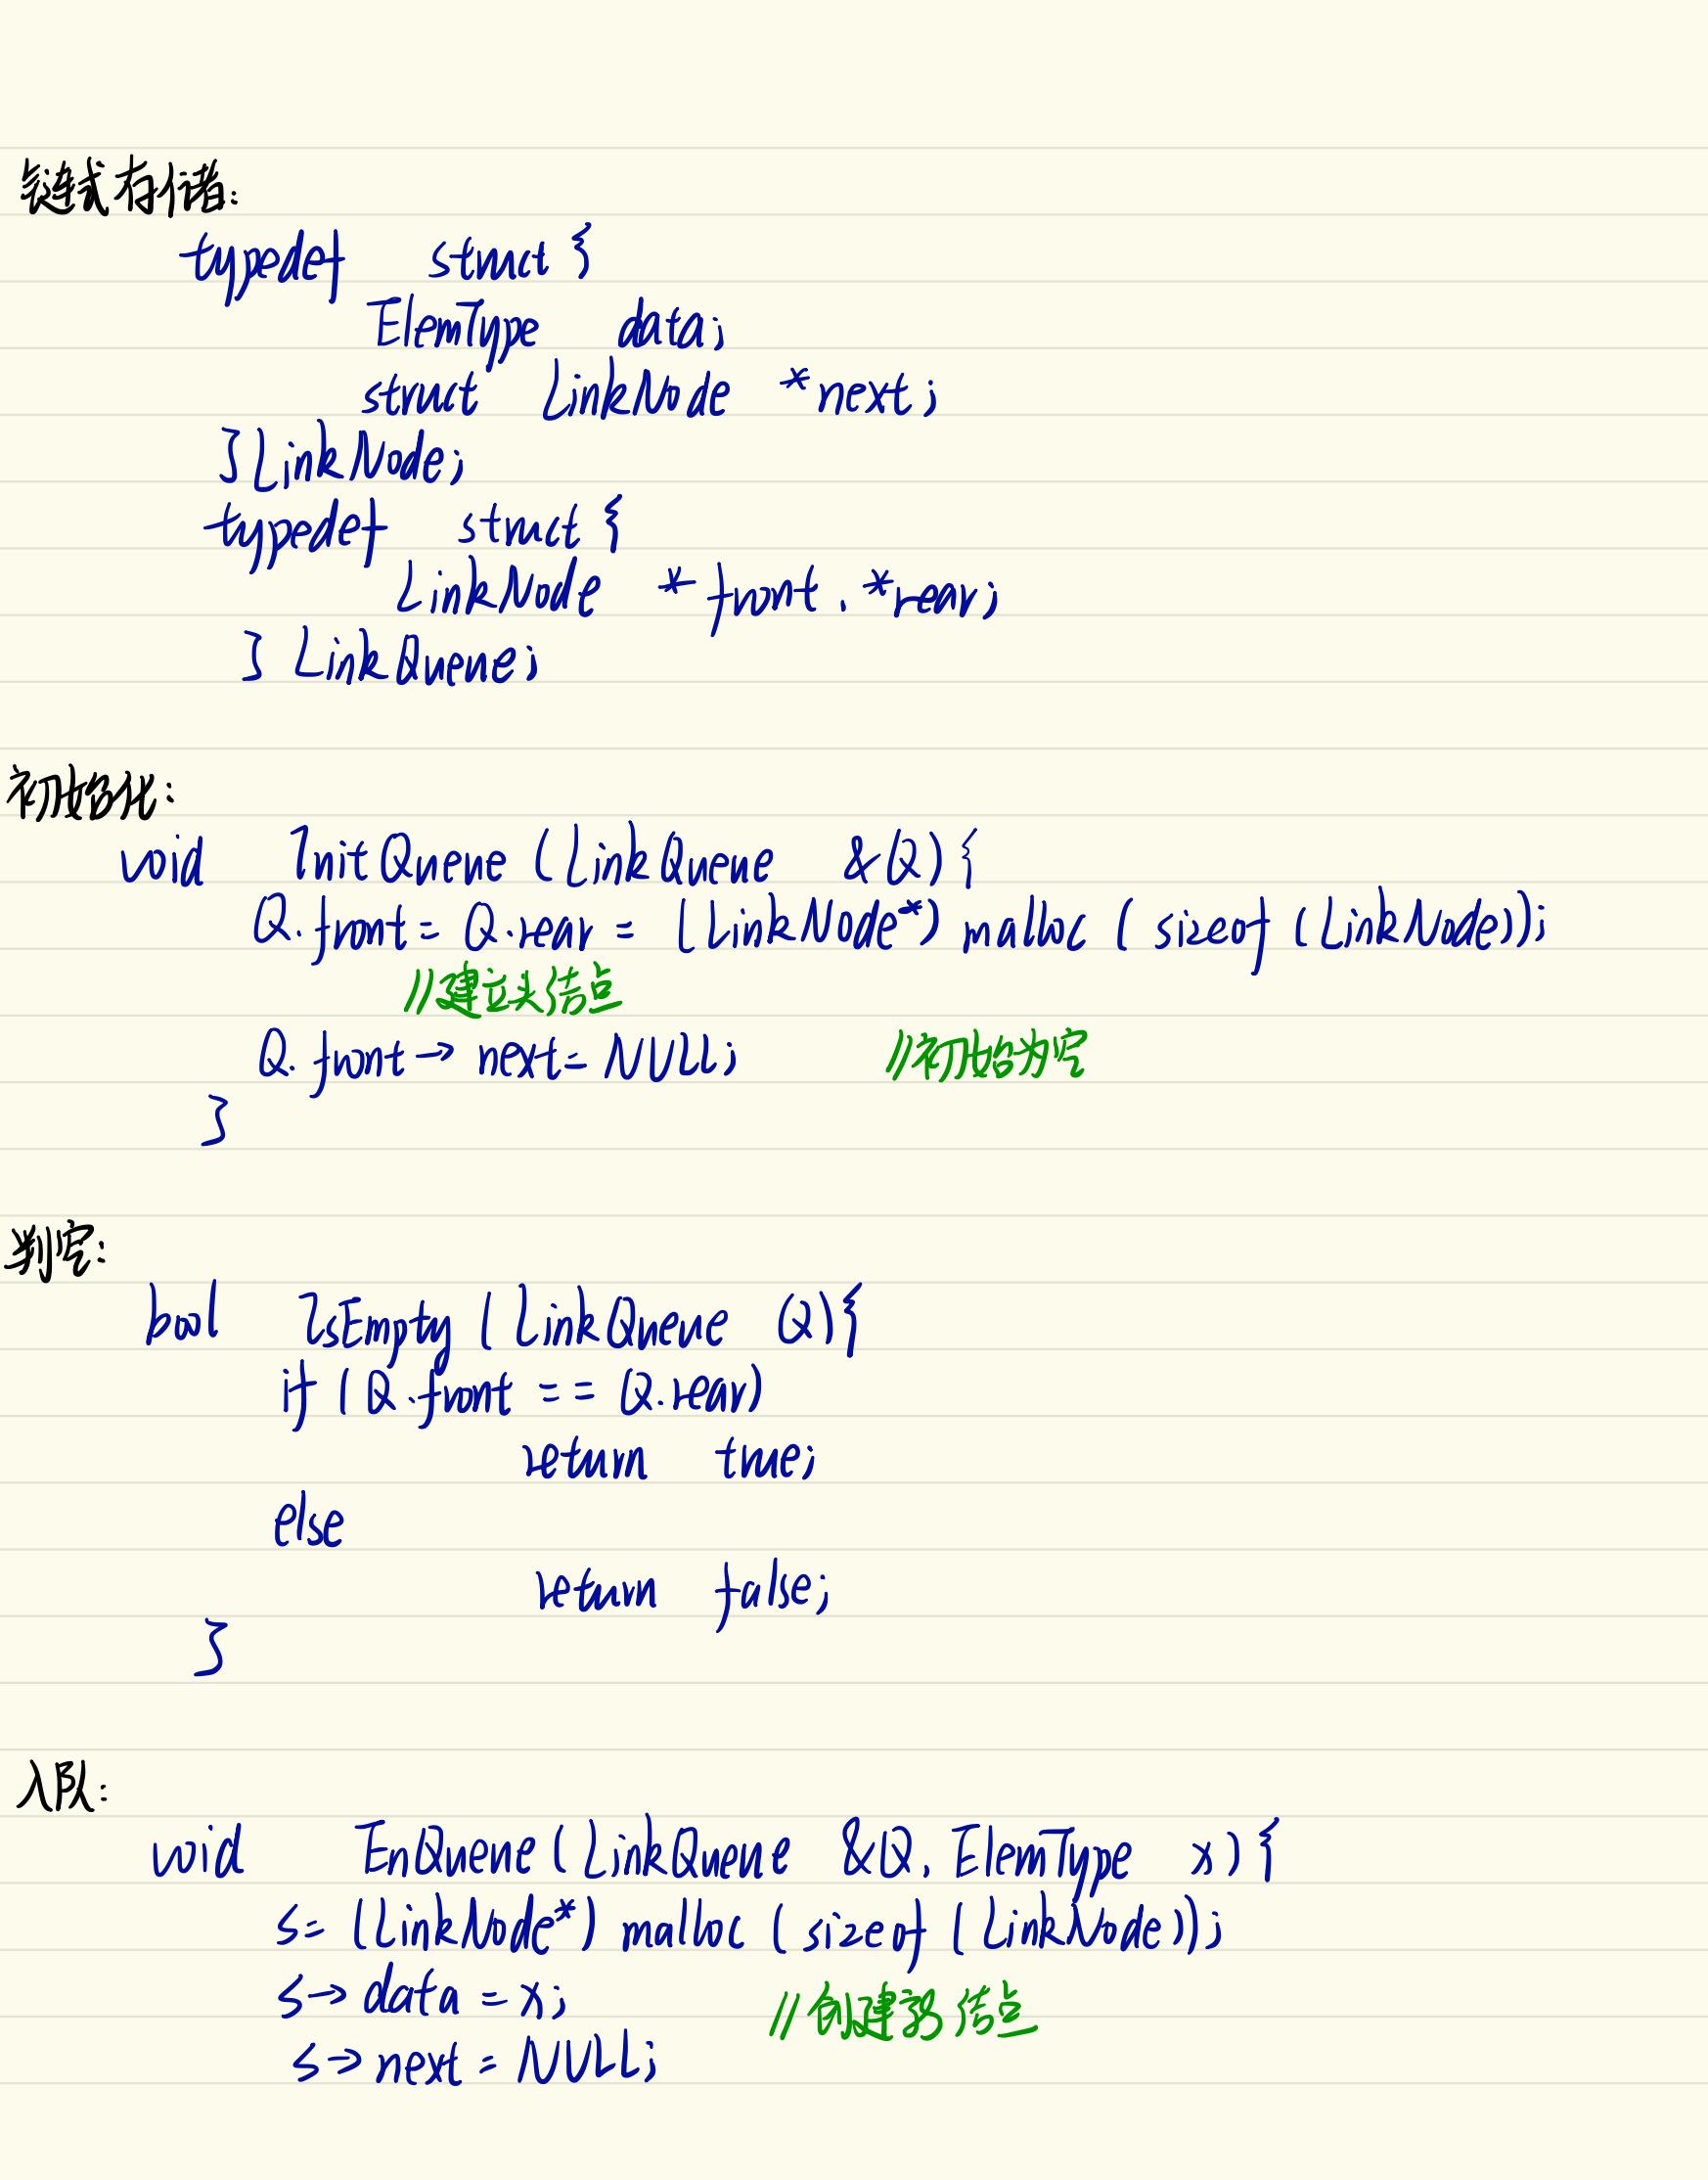 链式存储:
typedef struct {
ElemType data;
struct LinkNode *next;
}LinkNode;
typedef struct {
LinkNode *front, *rear;
} LinkQueue;
初始化:
void InitQueue (LinkQueue &Q){
Q.front = Q.rear = (LinkNode*) malloc (sizeof (LinkNode));
//建立头结点
Q.front→next = NULL; //初始为空
}
判空:
bool IsEmpty (LinkQueue Q){
if (Q.front == Q.rear)
return true;
else
return false;
}
入队:
void EnQueue (LinkQueue &Q, ElemType x) {
s = (LinkNode*) malloc (sizeof (LinkNode));
s→data = x; //创建新结点
s→next = NULL;